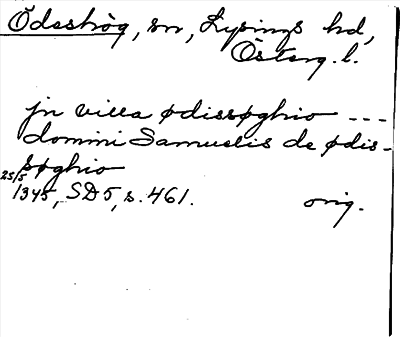 Ödeshög, sn, Lysings hd,
Österg. l.
jn villa ødissøghio ---
domini Samuelis de ødis-
søghio
25/5
1345, SD5, s. 461. orig.